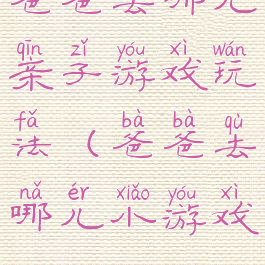 爸爸去哪儿
qīn zǐ yóu xì wán
亲子游戏玩
fǎ bà bà qù
法（爸爸去
nǎ ér xiǎo yóu xì
哪儿小游戏